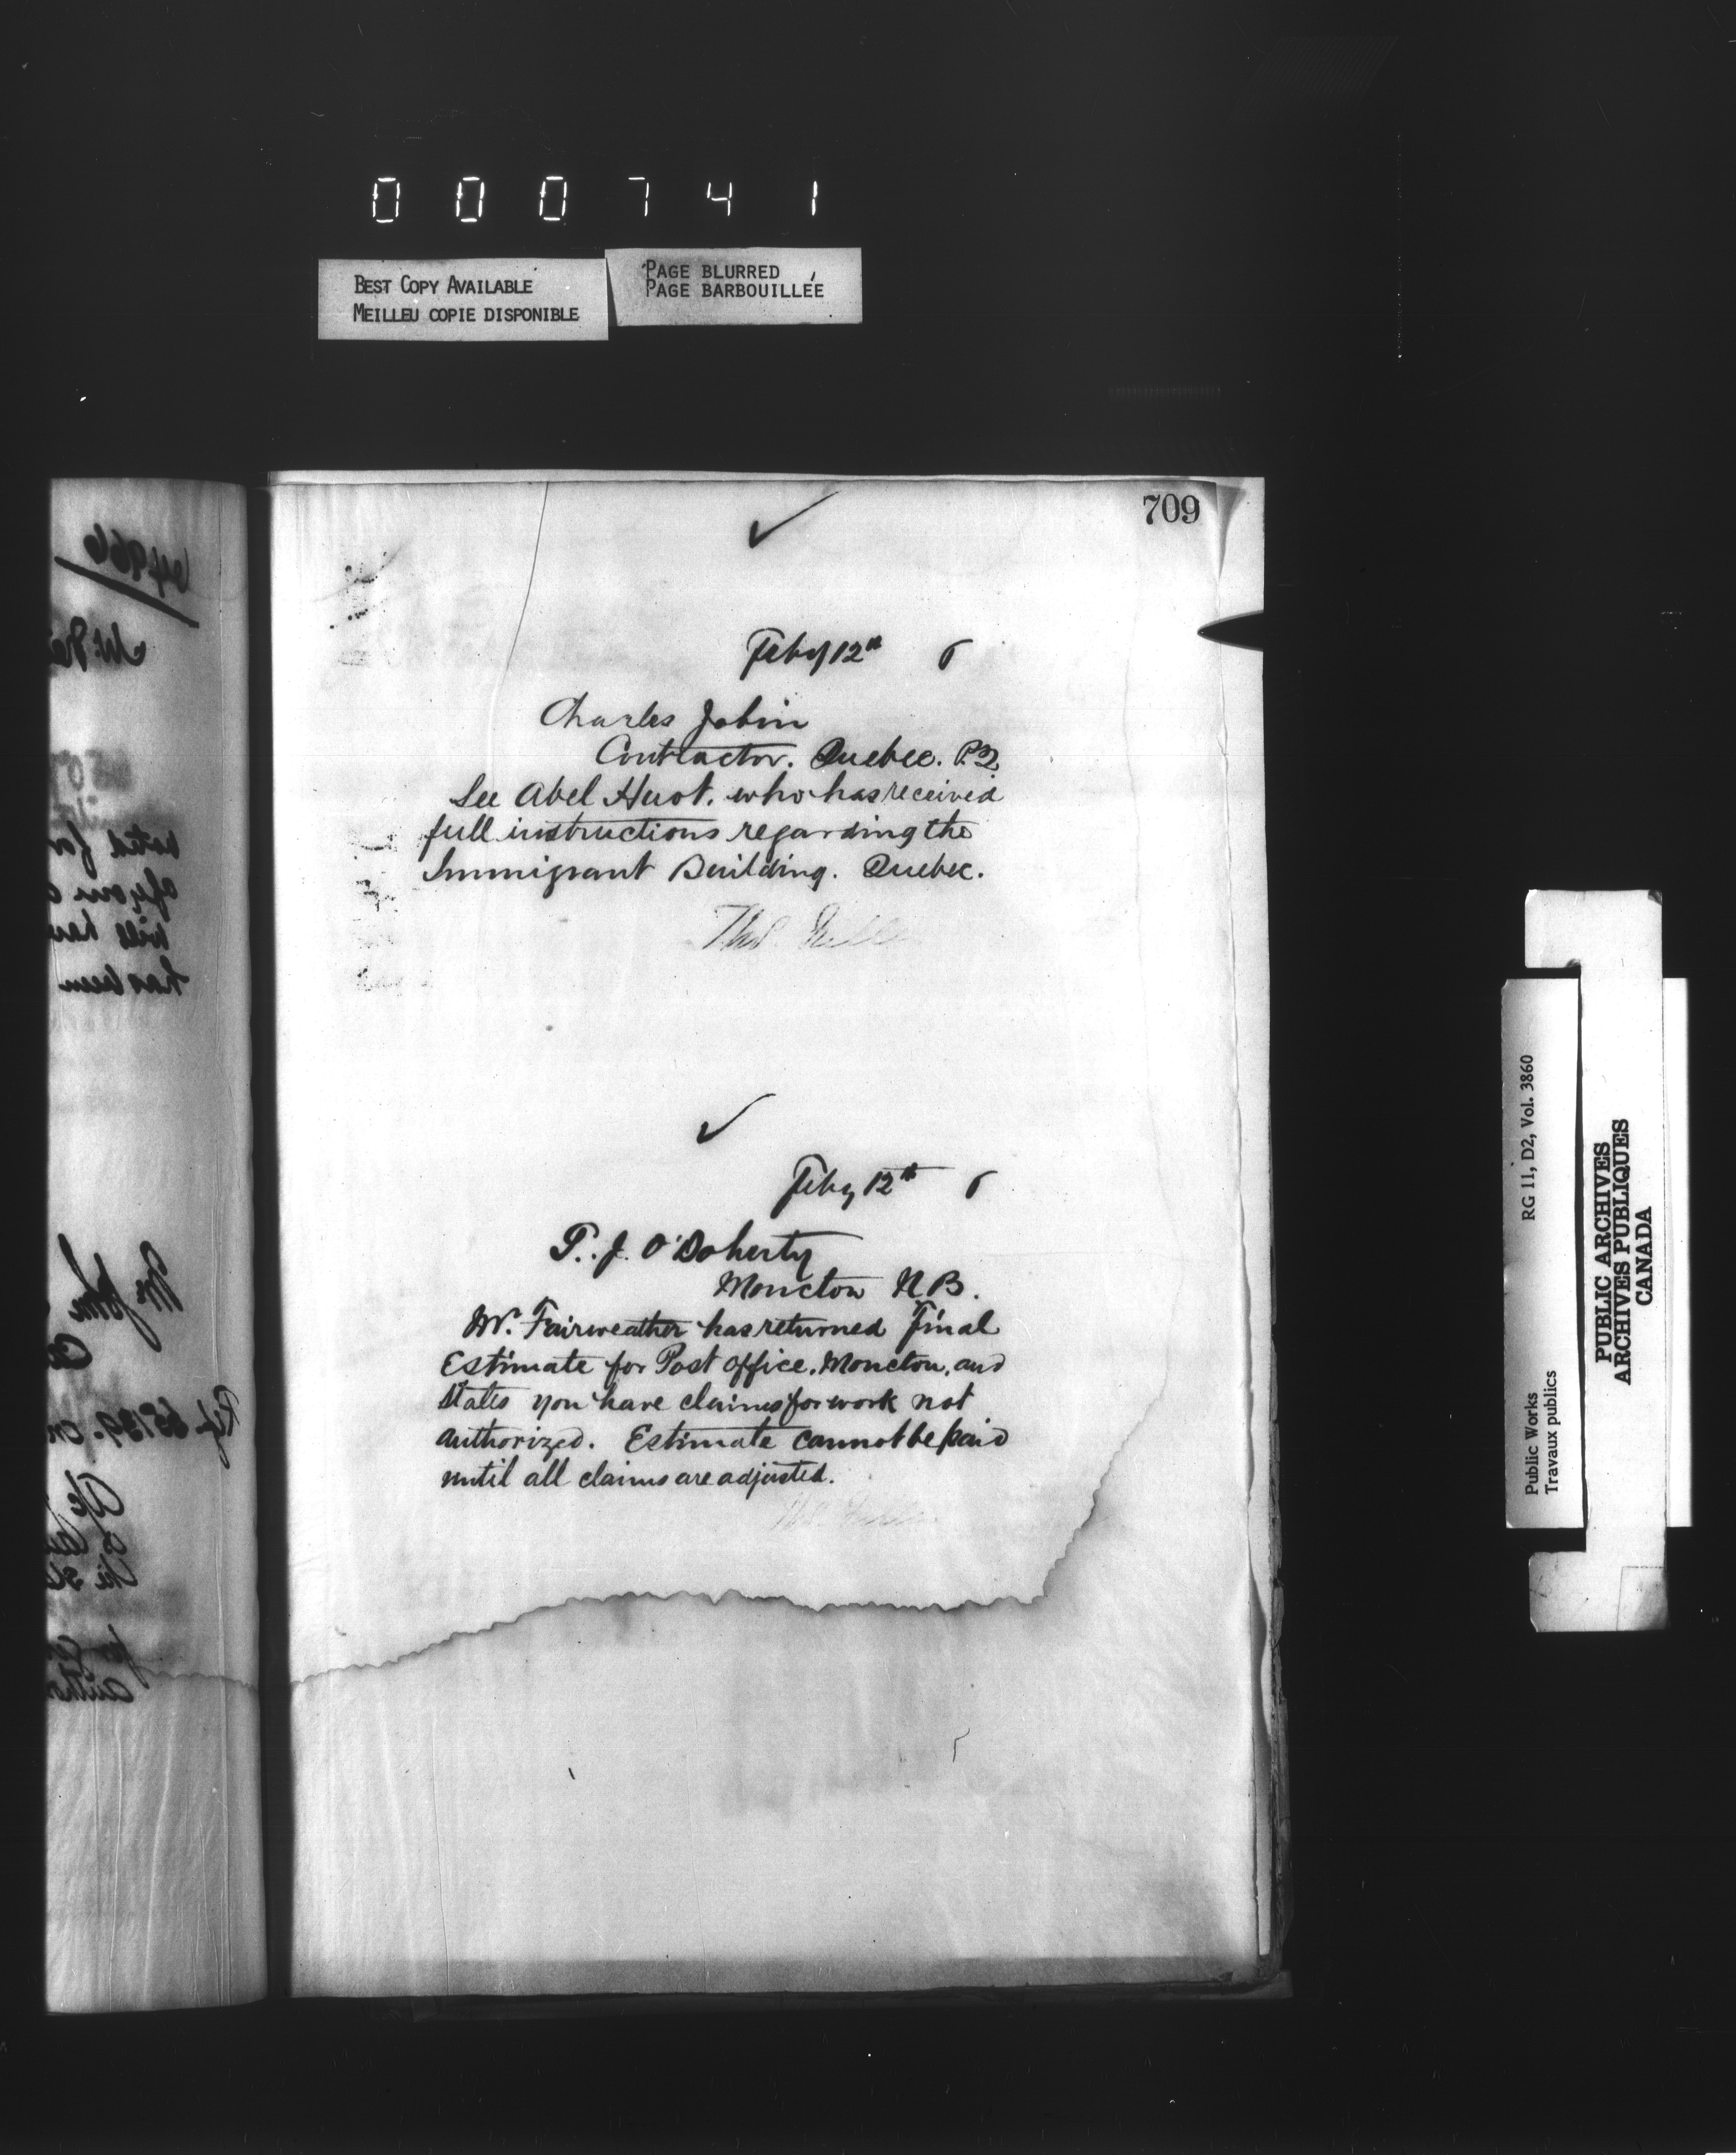 000741
BEST COPY AVAILABLE
MEILLEU COPIE DISPONIBLE
PAGE BLURRED
PAGE BARBOUILLÉE
709
Feby 12th 6
Charles Jobin
Contractor. Quebec. P.Q.
See Abel Huot. who has received
full instructions regarding the
Immigrant Building. Quebec.
Thos.
Feby 12th 6
P. J. O'Doherty
Moncton N.B.
Mr. Fairweather has returned Final
Estimate for Post Office. Moncton, and
states you have claims for work not
authorized. Estimate cannot be paid
until all claims are adjusted.
64966
noted for
of your
will have
has been
Mr John
Public Works
Travaux publics
RG 11, D2, Vol. 3860
PUBLIC ARCHIVES
ARCHIVES PUBLIQUES
CANADA